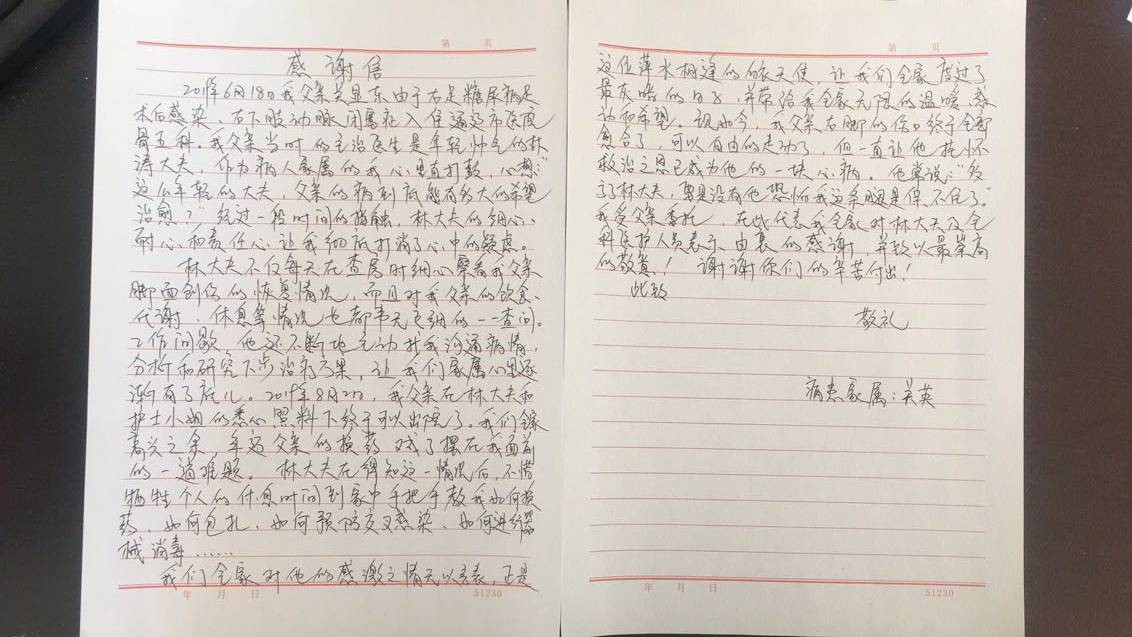 第 页
感谢信
2019年6月18日我父亲关显东由于右足糖尿病足
术后感染、右下肢动脉闭塞症入住通辽市医院
骨五科。我父亲当时的主治医生是年轻帅气的林
涛大夫，作为病人家属的我心里直打鼓，心想："
这么年轻的大夫，父亲的病到底能有多大的希望
治愈？"经过一段时间的接触，林大夫的细心、
耐心和责任心让我彻底打消了心中的疑虑。
林大夫不仅每天在查房时细心察看我父亲
脚面创伤的恢复情况，而且对我父亲的饮食、
代谢、休息等情况也都事无巨细的一一查问。
工作间歇，他还不断地主动找我沟通病情，
分析和研究下步治疗效果，让我们家属心里逐
渐有了底儿。2019年8月2日，我父亲在林大夫和
护士小姐的悉心照料下终于可以出院了。我们全家
高兴之余，年迈父亲的换药又成了摆在我面前
的一道难题。林大夫在得知这一情况后，不惜
牺牲个人的休息时间到家中手把手教我如何换
药、如何包扎、如何预防交叉感染、如何进行器
械消毒……
我们全家对他的感激之情无以言表，正是
年 月 日
51230
第 页
这位萍水相逢的白衣天使，让我们全家度过了
最灰暗的日子，并带给我全家无限的温暖、感
动和希望。现如今，我父亲右脚的伤口终于全部
愈合了，可以自由的走动了，但一直让他挂怀
救治之恩已成为他的一块心病。他常说："多
亏了林大夫，要是没有他恐怕我这条腿是保不住了"。
我受父亲委托，在此代表我全家对林大夫及全
科医护人员表示由衷的感谢，并致以最崇高
的敬意！谢谢你们的辛苦付出！
此致
敬礼
病患家属：关英
年 月 日
51230